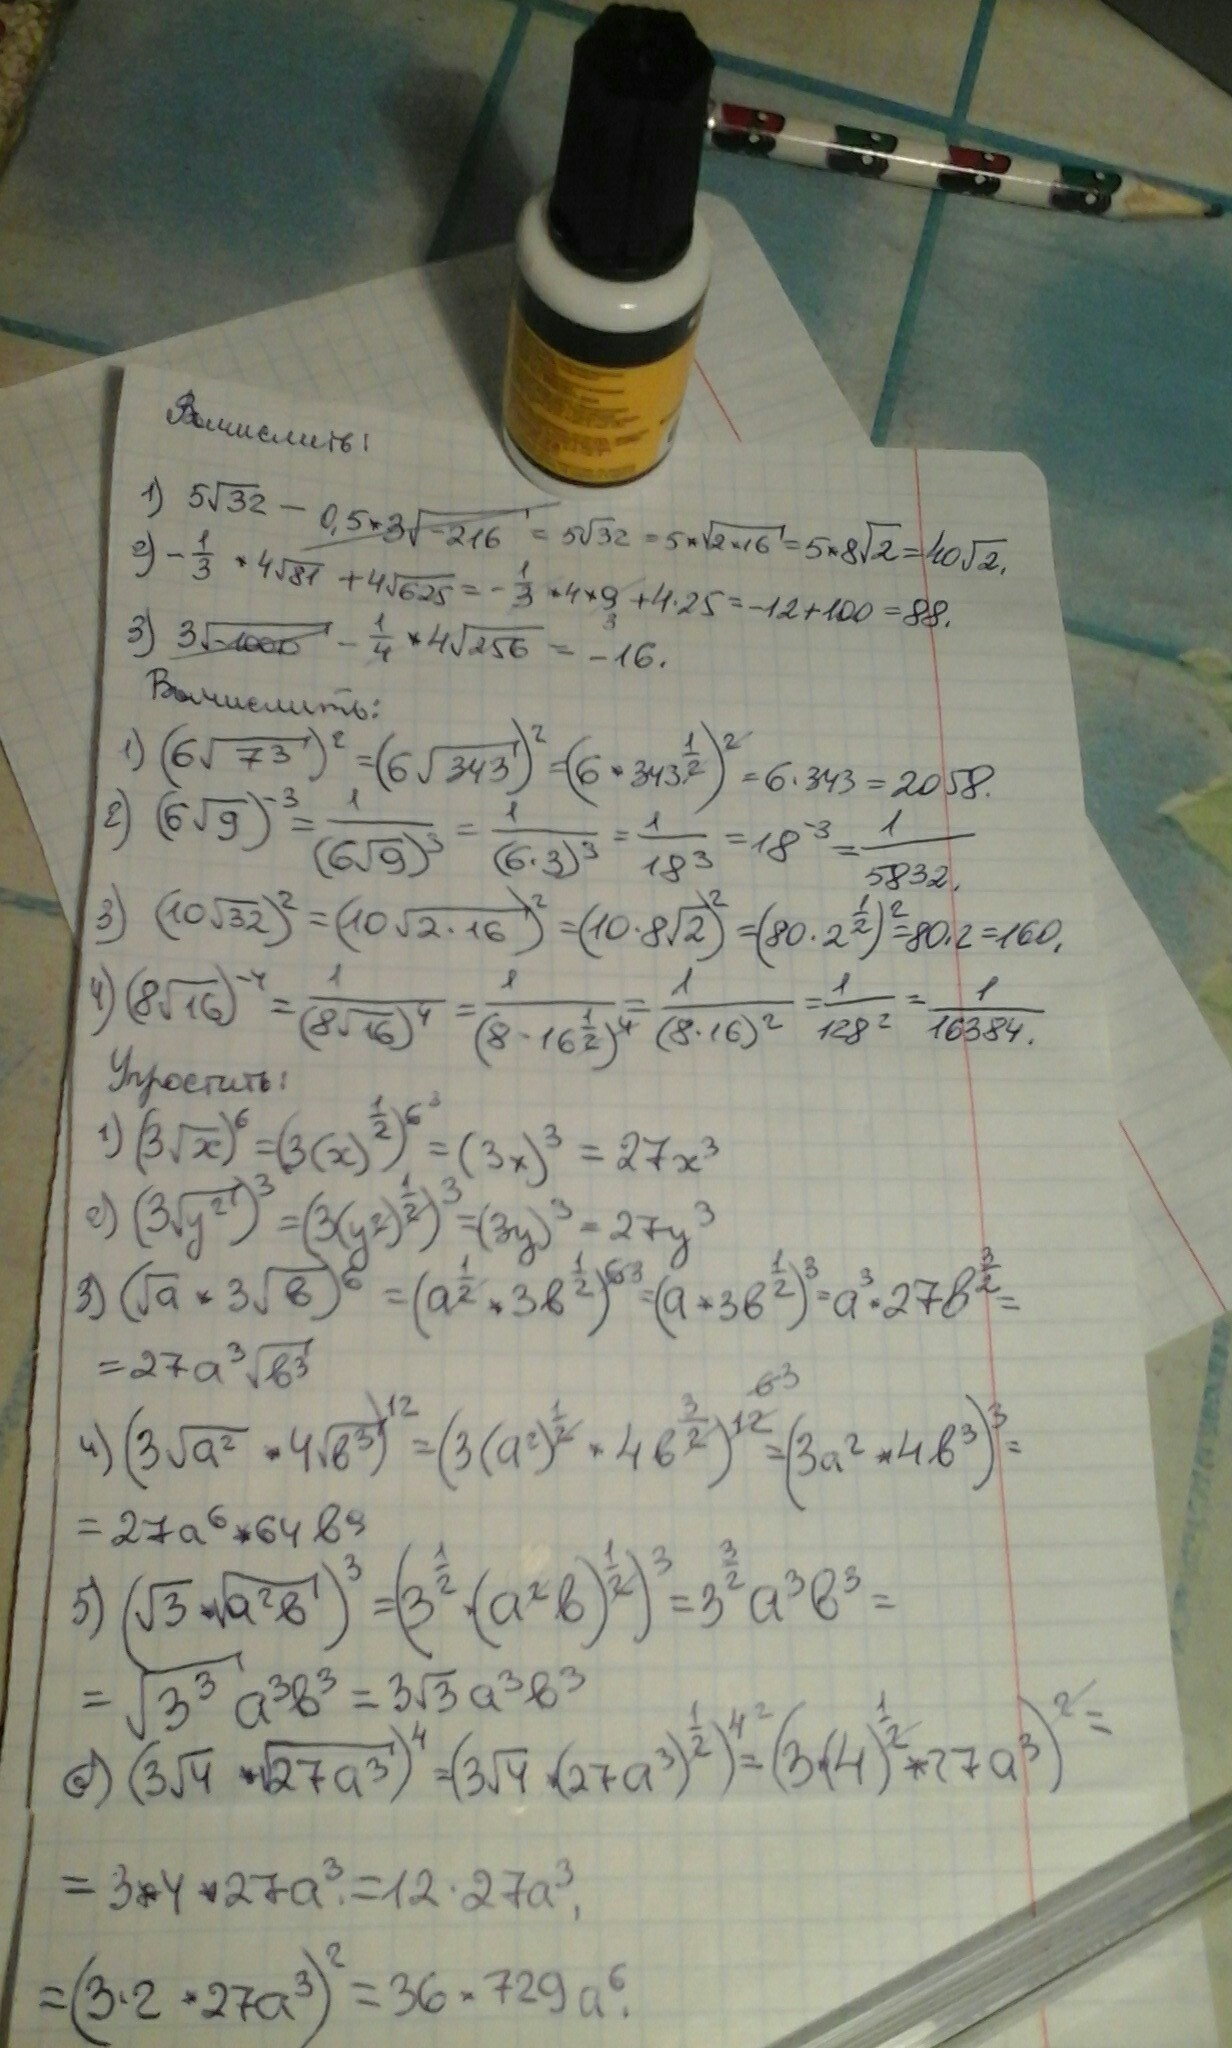 Вычислить:
1) 5√32 − 0,5*3√−216 = 5√32 = 5*√2*16 = 5*8√2 = 40√2.
2) −1/3 * 4√81 + 4√625 = −1/3 *4*9 + 4·25 = −12+100 = 88.
3) 3√−1000 − 1/4 * 4√256 = −16.
Вычислить:
1) (6√73)² = (6√343)² = (6*343^1/2)² = 6·343 = 2058.
2) (6√9)^-3 = 1/(6√9)³ = 1/(6·3)³ = 1/18³ = 18^-3 = 1/5832.
3) (10√32)² = (10√2·16)² = (10·8√2)² = (80·2^1/2)² = 80·2 = 160.
4) (8√16)^-4 = 1/(8√16)⁴ = 1/(8·16^1/2)⁴ = 1/(8·16)² = 1/128² = 1/16384.
Упростить:
1) (3√x)⁶ = (3(x)^1/2)^6 3 = (3x)³ = 27x³
2) (3√y²)³ = (3(y²)^1/2)³ = (3y)³ = 27y³
3) (√a * 3√в)⁶ = (a^1/2 * 3в^1/2)^6 3 = (a*3в^1/2)³ = a³*27в^3/2 =
= 27a³√в³
4) (3√a² * 4√в³)^12 = (3(a²)^1/2 * 4в^3/2)^12 6 3 = (3a² * 4в³)³ =
= 27a⁶ * 64в⁹
5) (√3 * √a²в)³ = (3^1/2 · (a²в)^1/2)³ = 3^3/2 a³в³ =
= √3³ a³в³ = 3√3 a³в³
6) (3√4 * √27a³)⁴ = (3√4 · (27a³)^1/2)^4 2 = (3*(4)^1/2 * 27a³)² =
= 3*4*27a³. = 12·27a³.
= (3·2*27a³)² = 36*729a⁶.